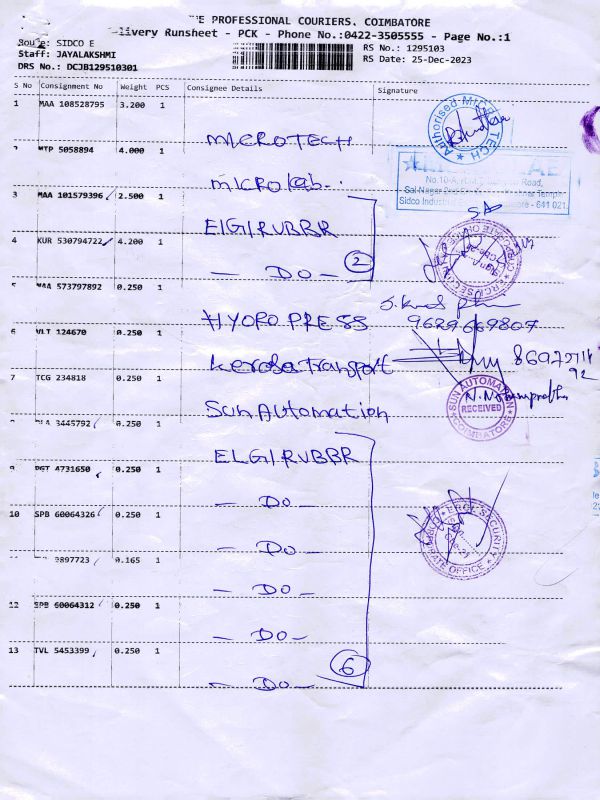 THE PROFESSIONAL COURIERS. COIMBATORE
Delivery Runsheet - PCK - Phone No.:0422-3505555 - Page No.:1
Route: SIDCO E
Staff: JAYALAKSHMI
DRS No.: DCJB129510301
RS No.: 1295103
RS Date: 25-Dec-2023
S No Consignment No Weight PCS Consignee Details Signature
1 MAA 108528795 3.200 1
MICROTECH
MTP 5058894 4.000 1
microlab
3 MAA 101579396 2.500 1
ELGI RUBBR
4 KUR 530794722 4.200 1
- DO - 2
MAA 573797892 0.250 1
HYDRO PRESS
9629669807
6 VLT 124670 0.250 1
Kerala Transport
7 TCG 234818 0.250 1
Sun Automation
SUN AUTOMATION
RECEIVED
COIMBATORE
3445792 0.250 1
ELGI RUBBR
9 PGT 4731650 0.250 1
- DO -
10 SPB 60064326 0.250 1
- DO -
9897723 0.165 1
- DO -
12 SPB 60064312 0.250 1
- DO -
13 TVL 5453399 0.250 1
- DO - 6